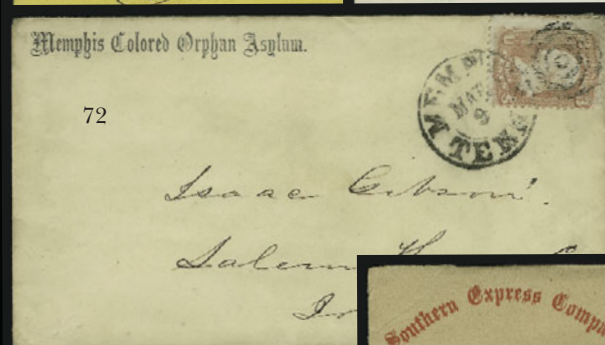 Memphis Colored Orphan Asylum.
MEMPHIS
MAR
9
TENN
72
Isaac Gibson.
Salem
Southern Express Comp